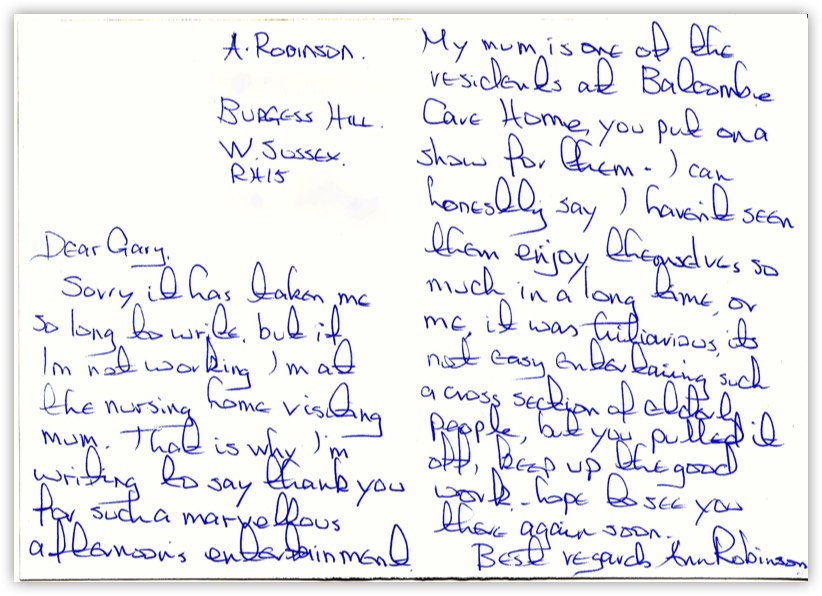 A. Robinson.
Burgess Hill.
W. Sussex.
RH15
Dear Gary,
Sorry it has taken me
so long to write, but if
I'm not working I'm at
the nursing home visiting
mum. That is why I'm
writing to say thank you
for such a marvellous
afternoon's entertainment
My mum is one of the
residents at Balcombe
Care Home, you put on a
show for them - I can
honestly say I haven't seen
them enjoy themselves so
much in a long time, or
me, it was hiliarious, its
not easy entertaining such
a cross section of elderly
people, but you pulled it
off, keep up the good
work - hope to see you
there again soon.
Best regards Ann Robinson